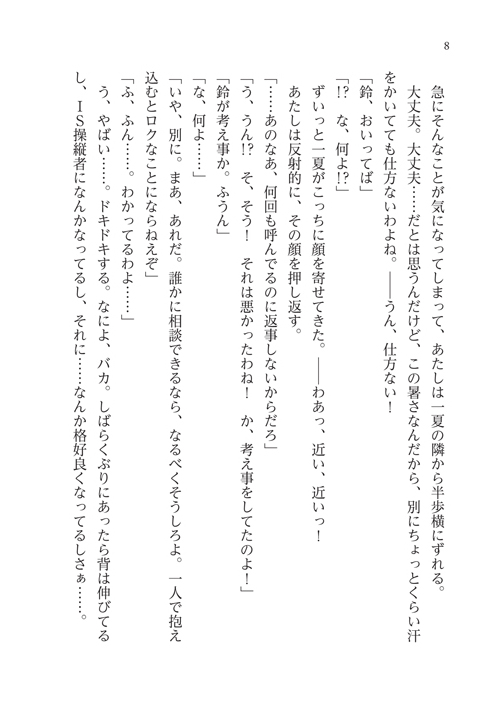 8
急にそんなことが気になってしまって、あたしは一夏の隣から半歩横にずれる。
大丈夫。大丈夫……だとは思うんだけど、この暑さなんだから、別にちょっとくらい汗
をかいてても仕方ないわよね。――うん、仕方ない！
「鈴、おいってば」
「!?　な、何よ!?」
ずいっと一夏がこっちに顔を寄せてきた。――わあっ、近い、近いっ！
あたしは反射的に、その顔を押し返す。
「……あのなあ、何回も呼んでるのに返事しないからだろ」
「う、うん!?　そ、そう！　それは悪かったわね！　か、考え事をしてたのよ！」
「鈴が考え事か。ふうん」
「な、何よ……」
「いや、別に。まあ、あれだ。誰かに相談できるなら、なるべくそうしろよ。一人で抱え
込むとロクなことにならねえぞ」
「ふ、ふん……。わかってるわよ……」
う、やばい……。ドキドキする。なによ、バカ。しばらくぶりにあったら背は伸びてる
し、ＩＳ操縦者になんかなってるし、それに……なんか格好良くなってるしさぁ……。